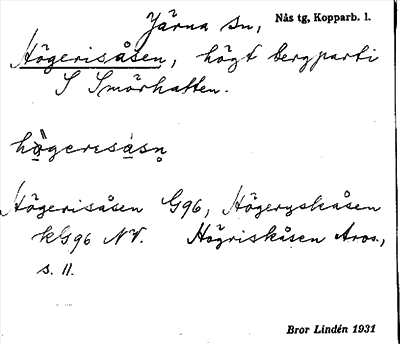 Järna sn, Nås tg, Kopparb. l.
Högerisåsen, högt bergparti
S Smörhatten.
hö̀gerɪsåsn̥
Högerisåsen G96, Högeryskåsen
kG96 NV. Högriskåsen Aros.,
s. 11.
Bror Lindén 1931